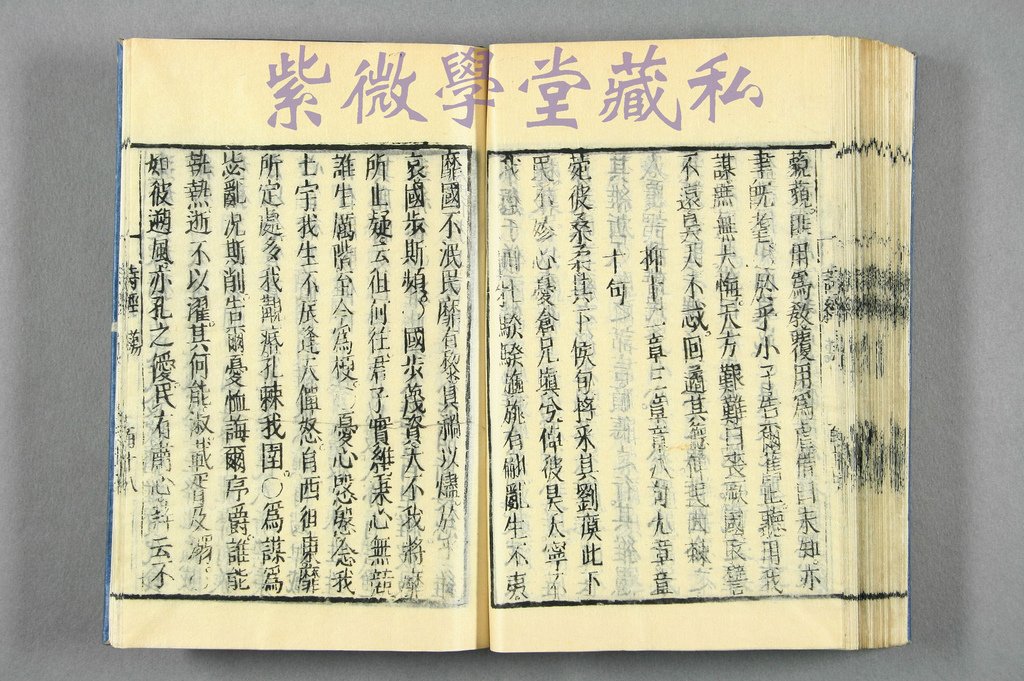 紫微學堂藏私
藐藐匪用爲教覆用爲虐借曰未知亦
聿旣耄於乎小子告爾舊止聽用我
謀庶無大悔天方艱難曰喪厥國取譬
不遠昊天不忒回遹其德俾民大棘
抑十二章三章章八句九章章
十句
菀彼桑柔其下侯旬捋采其劉瘼此下
民不殄心憂倉兄塡兮倬彼昊天寧不
四牡騤騤旟旐有翩亂生不夷
靡國不泯民靡有黎具禍以燼於乎
哀國步斯頻。國步蔑資天不我將靡
所止疑云徂何往君子實維秉心無競
誰生厲階至今爲梗。憂心慇慇念我
土宇我生不辰逢天僤怒自西徂東靡
所定處多我覯痻孔棘我圉。○爲謀爲
毖亂況斯削告爾憂恤誨爾序爵誰能
執熱逝不以濯其何能淑載胥及溺
如彼遡風亦孔之僾民有肅心荓云不
詩經 蕩 百十八